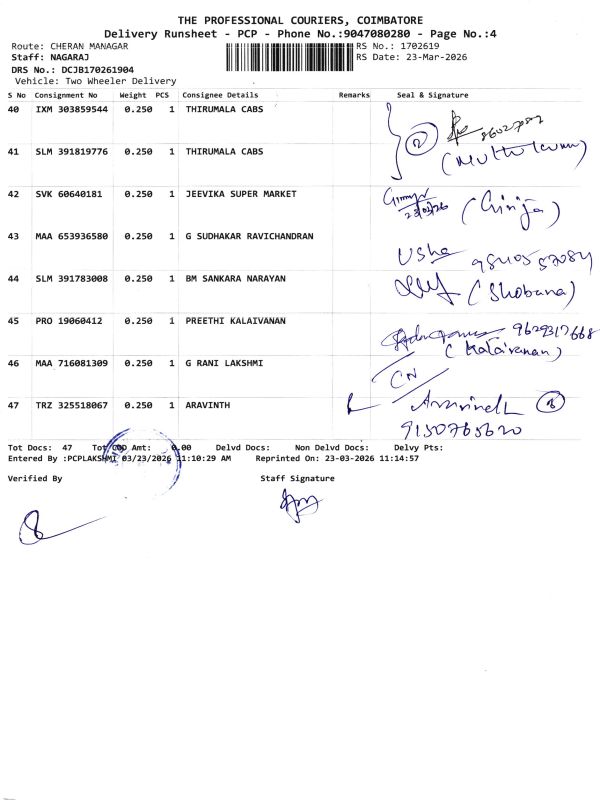 THE PROFESSIONAL COURIERS, COIMBATORE
Delivery Runsheet - PCP - Phone No.:9047080280 - Page No.:4
Route: CHERAN MANAGAR
RS No.: 1702619
Staff: NAGARAJ
RS Date: 23-Mar-2026
DRS No.: DCJB170261904
Vehicle: Two Wheeler Delivery
S No Consignment No Weight PCS Consignee Details Remarks Seal & Signature
40 IXM 303859544 0.250 1 THIRUMALA CABS
2
41 SLM 391819776 0.250 1 THIRUMALA CABS
(Muthukumar)
42 SVK 60640181 0.250 1 JEEVIKA SUPER MARKET
23/03/26 (Girija)
43 MAA 653936580 0.250 1 G SUDHAKAR RAVICHANDRAN
Usha
44 SLM 391783008 0.250 1 BM SANKARA NARAYAN
(Shobana)
45 PRO 19060412 0.250 1 PREETHI KALAIVANAN
9629317668
(Kalaivanan)
46 MAA 716081309 0.250 1 G RANI LAKSHMI
CN
47 TRZ 325518067 0.250 1 ARAVINTH
9150765620
Tot Docs: 47 Tot COD Amt: 0.00 Delvd Docs: Non Delvd Docs: Delvy Pts:
Entered By :PCPLAKSHMI 03/23/2026 11:10:29 AM Reprinted On: 23-03-2026 11:14:57
Verified By Staff Signature